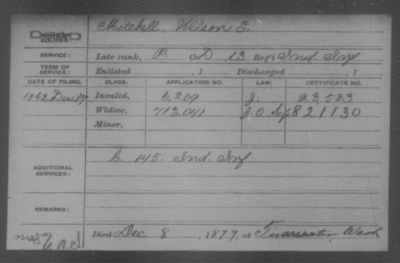 DEAD SOLDIER: Mitchell, Wilson E.
SERVICE: Late rank, P Co. D, 13 Reg't Ind. Inf.
TERM OF SERVICE: Enlisted , 1 Discharged , 1
DATE OF FILING. CLASS. APPLICATION NO. LAW. CERTIFICATE NO.
1862 Invalid, 6,209 23,523
Widow, 713,041 821130
Minor,
ADDITIONAL SERVICES: 145 Ind. Inf
REMARKS:
Died Dec 8, 1879, at Tumwater, Wash